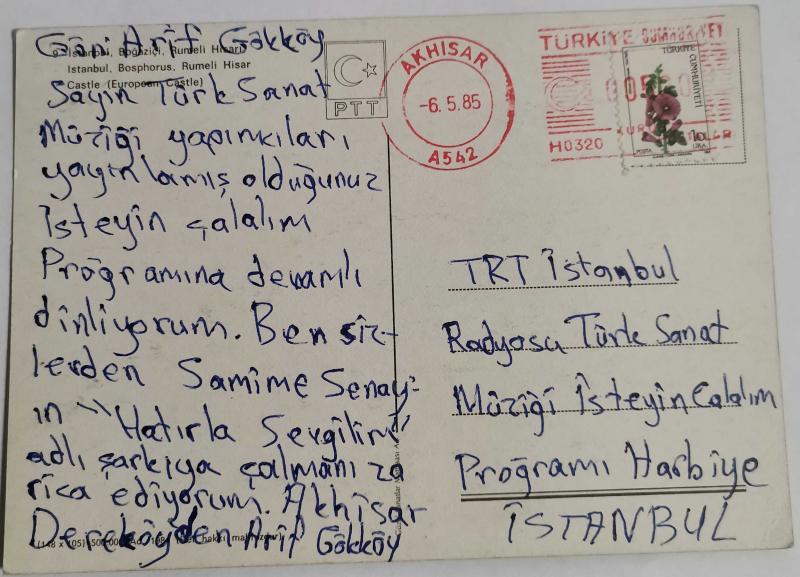 Gön: Arif Gökköy
İstanbul, Boğaziçi, Rumeli Hisarı
Istanbul, Bosphorus, Rumeli Hisar
Castle (European Castle)
Sayın Türk Sanat
Müziği yapımkıları
yayınlamış olduğunuz
İsteyin çalalım
Proğramına devamlı
dinliyorum. Ben siz-
lerden Samime Senay'
ın "Hatırla Sevgilim"
adlı şarkıya çalmanıza
rica ediyorum. Akhisar
Dereköyden Arif Gökköy
PTT
AKHİSAR
-6.5.85
A542
TÜRKİYE CUMHURİYETİ
H0320
TÜRKİYE CUMHURİYETİ
10
LİRA
POSTA
TRT İstanbul
Radyosu Türk Sanat
Müziği İsteyin Çalalım
Proğramı Harbiye
İSTANBUL